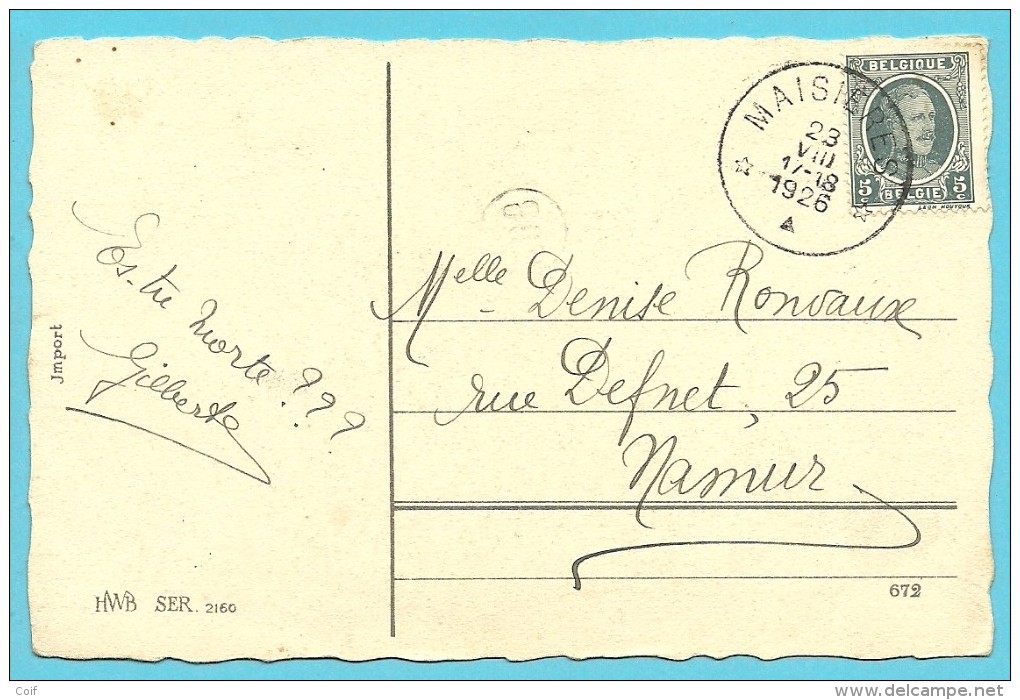 BELGIQUE
5c 5c
BELGIE
MAISIERES
23
VIII
17-18
1926
Es-tu morte???
Gilberte
Melle Denise Ronvaux
rue Defnet, 25
Namur
Jmport
HWB SER. 2160
672
Coif
www.delcampe.net